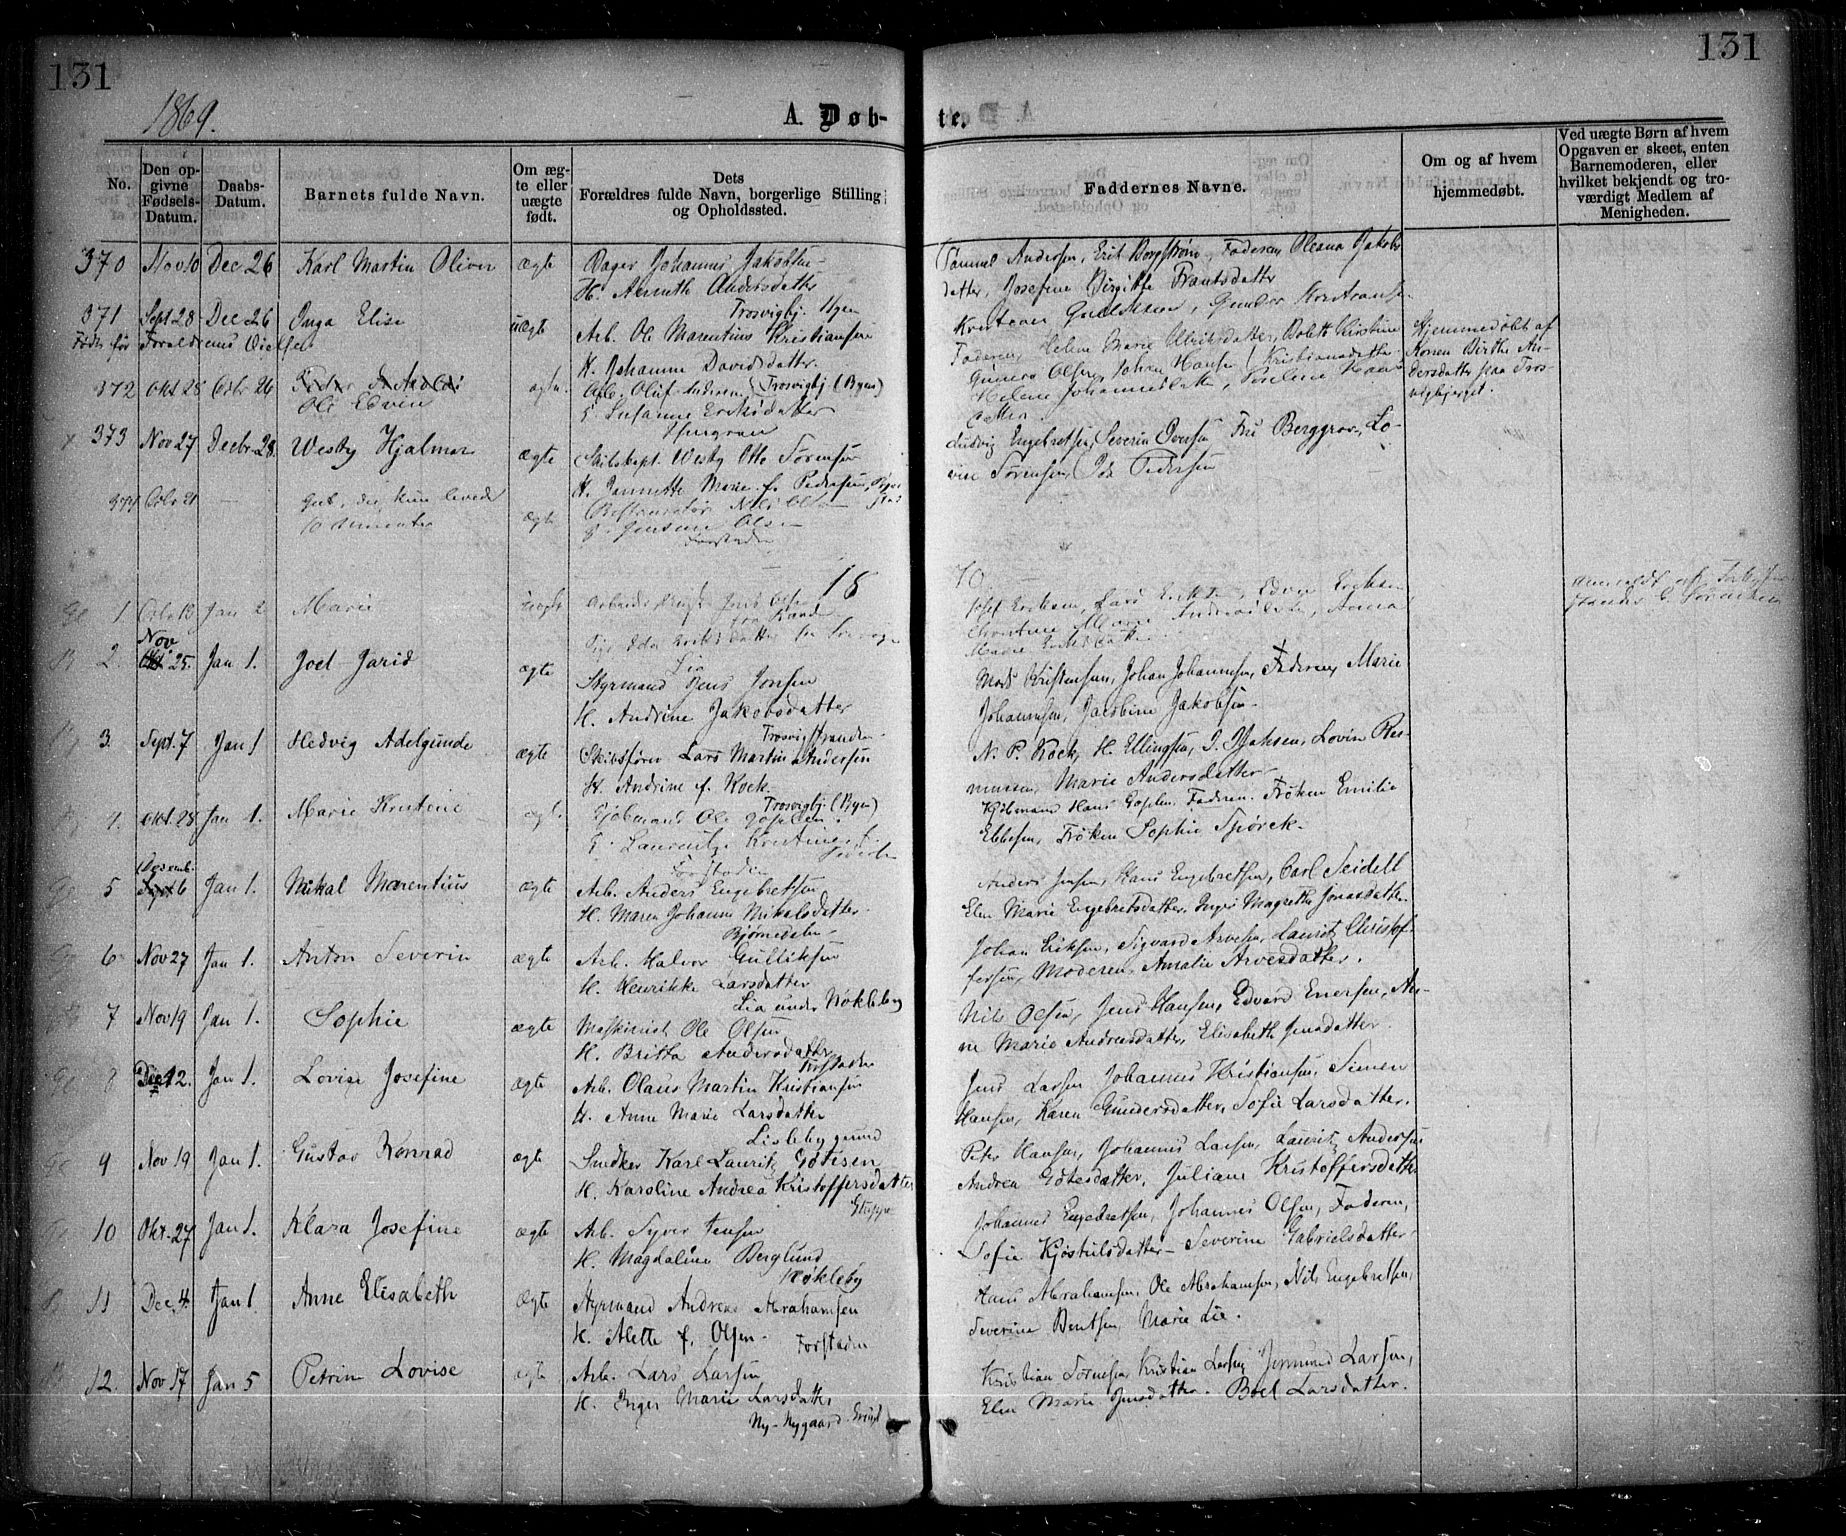 131
131
1869.
A. Døb-
te.
No.
Den op-
givne
Fødsels-
Datum.
Daabs-
Datum.
Barnets fulde Navn.
Om æg-
te eller
uægte
født.
Dets
Forældres fulde Navn, borgerlige Stilling
og Opholdssted.
Faddernes Navne.
Om og af hvem
hjemmedøbt.
Ved uægte Børn af hvem
Opgaven er skeet, enten
Barnemoderen, eller
hvilket bekjendt og tro-
værdigt Medlem af
Menigheden.
370 Nov 10 Dec 26 Karl Martin Oliver ægte Bager Johannes Jakobsen
H. Anneth Andersdatter
Trosvigbj. Byen
Samuel Andersen, Erik Borgstrøm, Faderen, Oleana Jakobs
datter, Josefine Birgitte Frantsdatter
371 Sept 28 Dec 26 Inga Elise uægte Arb. Ole Marentius Kristiansen
Født før Forældrenes Vielse
H. Johanne Davidsdatter
Trosvigbj (Byen)
Faderen, Helene Marie Ulriksdatter, Bolette Kirstine
Kristiansdatter
Hjemmedøbt af
Konen Birthe An-
dersdatter paa Tros-
vigbjerget.
372 Okt 28 Dcbr 26
Ole Edvin ægte Arb. Oluf Andersen
G Susanne Eriksdatter
Gunerius Olsen, Johan Hansen
Helene Johannesdatter
datter
373 Nov 27 Decbr. 28 Westy Hjalmar ægte Skibskapt. Westy Otto Sørensen
H. Jannette Marie f. Pedersen,
Ludvig Engebretsen, Severin Iversen, Fru Berggrav, Lo-
vise Sørensen, Ida Pedersen
374 Dcbr 21 — Gut, der kun levede
10 Minuter ægte Restauratør Nils Olsen
G. Jensine Olsen
Forstaden
18
70
1 Dcbr 13 Jan 2 Marie uægte
Josef Eriksen, Lars Eriksen, Edvin Eriksen
Christine Marie Andreasdatter, Anna
Marie Eriksdatter
2. Nov 25. Jan 1. Joel Jarid ægte Styrmand Jens Jonsen
H. Andrine Jakobsdatter
Trosvigstranden
Mads Kristensen, Johan Johannesen, Faderen, Marie
Johannesen, Jacobine Jakobsen.
3. Sept. 7 Jan 1 Hedvig Adelgunde ægte Skibsfører Lars Martin Andersen
H. Andrine f. Kock.
Trosvigbj (Byen)
N. P. Kock, H. Ellingsen, I. Isaksen, Lovise Ras-
mussen, Marie Andersdatter
4. Okt. 28 Jan 1. Marie Kristine ægte Kjøbmand Ole Goplen.
G. Lauritze Kristine f.
Forstaden
Kjøbmand Hans Goplen, Faderen, Frøken Emilie
Ebbesen, Frøken Sophie Spørck.
5 Decemb. 6 Jan 1. Mikal Marentius ægte Arb. Anders Engebretsen
H. Maren Johanne Mikalsdatter
Bjørnedalen
Anders Jensen, Hans Engebretsen, Carl Seidell
Elen Marie Engebretsdatter, Inger Magrethe Jonasdatter.
6 Nov 27 Jan 1. Anton Severin ægte Arb. Halvor Gulliksen
H. Henrikke Larsdatter
Lia under Nøkleby
Johan Eriksen, Sigvard Arvesen, Lauritz Christof-
fersen, Moderen, Amalie Arvesdatter.
7 Nov 19 Jan 1. Sophie ægte Maskinist Ole Olsen
H. Britta Andersdatter
Forstaden
Nils Olsen, Jens Hansen, Edvard Enersen, An-
ne Marie Andreasdatter, Elisabeth Jensdatter.
8 Dec 12. Jan 1. Lovise Josefine ægte Arb. Olaus Martin Kristiansen
H. Anne Marie Larsdatter
Lislebygrund
Jens Larsen, Johannes Kristiansen, Simen
Hansen, Karen Gundersdatter, Sofie Larsdatter.
9 Nov 19 Jan 1. Gustav Konrad ægte Snedker Karl Lauritz Gøtesen
H. Karoline Andrea Kristoffersdatter
Gluppe
Peter Hansen, Johannes Larsen, Lauritz Andersen
Andrea Gøtesdatter, Juliane Kristoffersdatter
10 Okt. 27 Jan 1. Klara Josefine ægte Arb. Syver Jensen
H. Magdaline Berglund
Nøkleby
Johannes Engebretsen, Johannes Olsen, Faderen,
Sofie Kjøstulsdatter - Severine Gabrielsdatter
11 Dec. 4. Jan 1. Anne Elisabeth ægte Styrmand Andreas Abrahamsen
H. Alette f. Olsen.
Forstaden
Hans Abrahamsen, Ole Abrahamsen, Nils Engebretsen,
Severine Bentsen, Marie Lie.
12. Nov 17 Jan 5 Petrine Lovise ægte Arb. Lars Larsen
H. Inger Marie Larsdatter
Ny-Nygaard Grund
Kristian Sørensen, Kristian Larsen, Jermund Larsen,
Elen Marie Jensdatter. Boel Larsdatter.